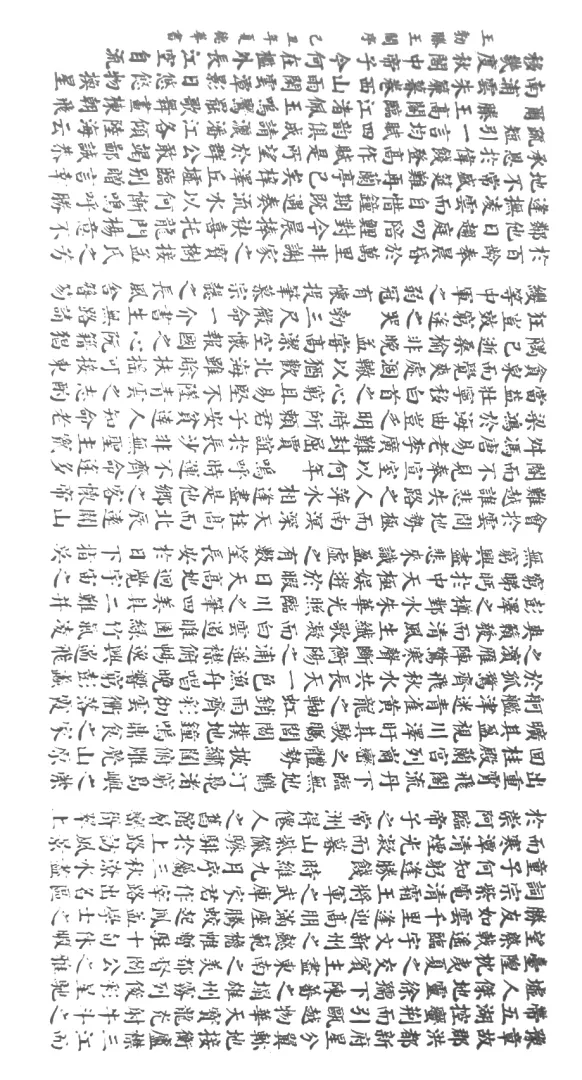 豫章故郡洪都新府星分翼軫地接衡廬襟三江而
帶五湖控蠻荊而引甌越物華天寶龍光射牛斗之
墟人傑地靈徐孺下陳蕃之榻雄州霧列俊彩星馳
臺隍枕夷夏之交賓主盡東南之美都督閻公之雅
望棨戟遙臨宇文新州之懿範襜帷暫駐十旬休暇
勝友如雲千里逢迎高朋滿座騰蛟起鳳孟學士之
詞宗紫電清霜王將軍之武庫家君作宰路出名區
童子何知躬逢勝餞 時維九月序屬三秋潦水盡
而寒潭清煙光凝而暮山紫儼驂騑於上路訪風景
於崇阿臨帝子之長洲得仙人之舊館層臺聳翠上
出重霄飛閣流丹下臨無地鶴汀鳧渚窮島嶼之
縈回桂殿蘭宮即岡巒之體勢披繡闥俯雕甍山原
曠其盈視川澤紆其駭矚閭閻撲地鐘鳴鼎食之家
舸艦迷津青雀黃龍之軸虹銷雨霽彩徹區明落霞
與孤鶩齊飛秋水共長天一色漁舟唱晚響窮彭蠡
之濱雁陣驚寒聲斷衡陽之浦遙襟甫暢逸興遄飛
爽籟發而清風生纖歌凝而白雲遏睢園綠竹氣凌
彭澤之樽鄴水朱華光照臨川之筆四美具二難并
窮睇眄於中天極娛遊於暇日天高地迥覺宇宙之
無窮興盡悲來識盈虛之有數望長安於日下指吳
會於雲間地勢極而南溟深天柱高而北辰遠關山
難越誰悲失路之人萍水相逢盡是他鄉之客懷帝
閽而不見奉宣室以何年 嗟乎時運不齊命途多
舛馮唐易老李廣難封屈賈誼於長沙非無聖主竄
梁鴻於海曲豈乏明時所賴君子安貧達人知命老
當益壯寧移白首之心窮且益堅不墜青雲之志酌
貪泉而覺爽處涸轍以猶歡北海雖賒扶搖可接東
隅已逝桑榆非晚孟嘗高潔空懷報國之心阮籍猖
狂豈效窮途之哭 勃三尺微命一介書生無路請
纓等終軍之弱冠有懷投筆慕宗愨之長風舍簪笏
於百齡奉晨昏於萬里非謝家之寶樹接孟氏之芳
鄰他日趨庭叨陪鯉對今晨捧袂喜托龍門楊意不
逢撫凌雲而自惜鍾期既遇奏流水以何慚嗚呼勝
地不常盛筵難再蘭亭已矣梓澤丘墟臨別贈言幸
承恩於偉餞登高作賦是所望於群公敢竭鄙誠恭
疏短引一言均賦四韻俱成請灑潘江各傾陸海云
爾 滕王高閣臨江渚佩玉鳴鸞罷歌舞畫棟朝飛
南浦雲朱簾暮捲西山雨閒雲潭影日悠悠物換星
移幾度秋閣中帝子今何在檻外長江空自流
王勃滕王閣序 己丑年夏德華書